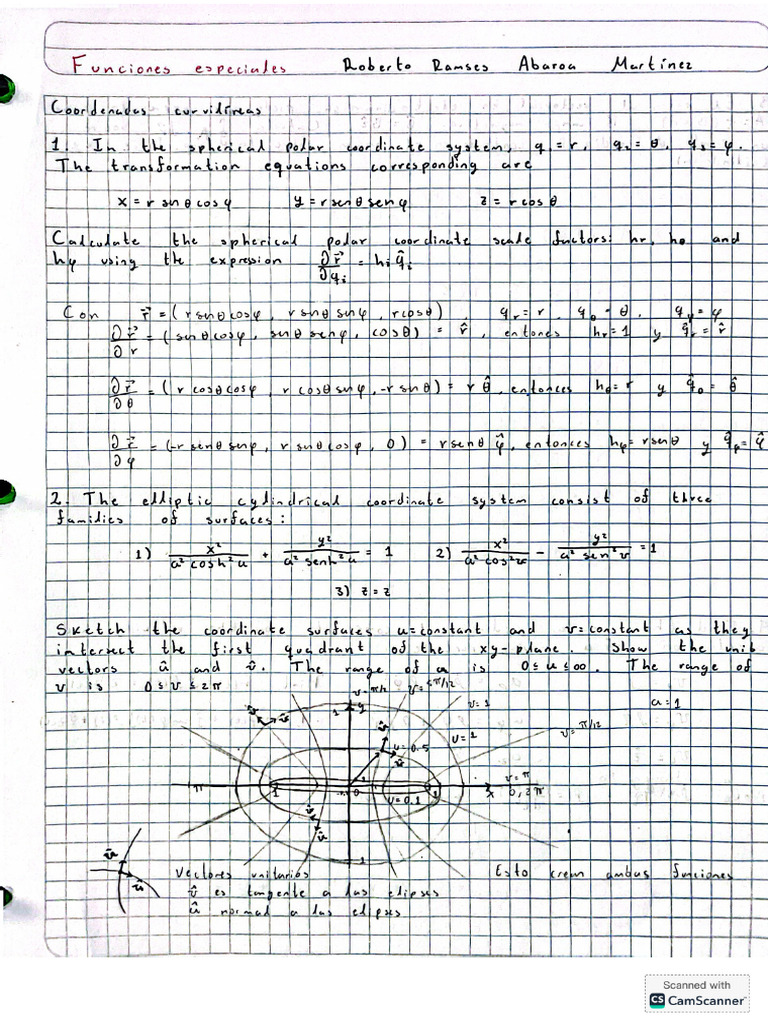 Funciones especiales Roberto Ramses Abaroa Martínez
Coordenadas curvilíneas
1. In the spherical polar coordinate system, q₁ = r, q₂ = θ, q₃ = φ.
The transformation equations corresponding are
x = r senθ cosφ y = r senθ senφ z = r cosθ
Calculate the spherical polar coordinate scale factors: hr, hθ and
hφ using the expression ∂r⃗/∂qᵢ = hᵢ q̂ᵢ
Con r⃗ = (r senθ cosφ, r senθ senφ, r cosθ), q_r = r, q_θ = θ, q_φ = φ
∂r⃗/∂r = (senθ cosφ, senθ senφ, cosθ) = r̂, entonces hr = 1 y q̂r = r̂
∂r⃗/∂θ = (r cosθ cosφ, r cosθ senφ, -r senθ) = r θ̂, entonces hθ = r y q̂θ = θ̂
∂r⃗/∂φ = (-r senθ senφ, r senθ cosφ, 0) = r senθ φ̂, entonces hφ = r senθ y q̂φ = φ̂
2. The elliptic cylindrical coordinate system consist of three
families of surfaces:
1) x²/(a² cosh² u) + y²/(a² senh² u) = 1 2) x²/(a² cos² v) - y²/(a² sen² v) = 1
3) z = z
Sketch the coordinate surfaces u = constant and v = constant as they
intersect the first quadrant of the xy-plane. Show the unit
vectors û and v̂. The range of u is 0 ≤ u ≤ ∞. The range of
v is 0 ≤ v ≤ 2π
v = 1 a = 1
1 y u = 1 v = π/12
v̂ u = 0.5
û
π 1 0 u = 0.1 1 x v = π
0, 2π
1
Vectores unitarios Esto crean ambas funciones
v̂ es tangente a las elipses
û normal a las elipses
Scanned with
CS CamScanner